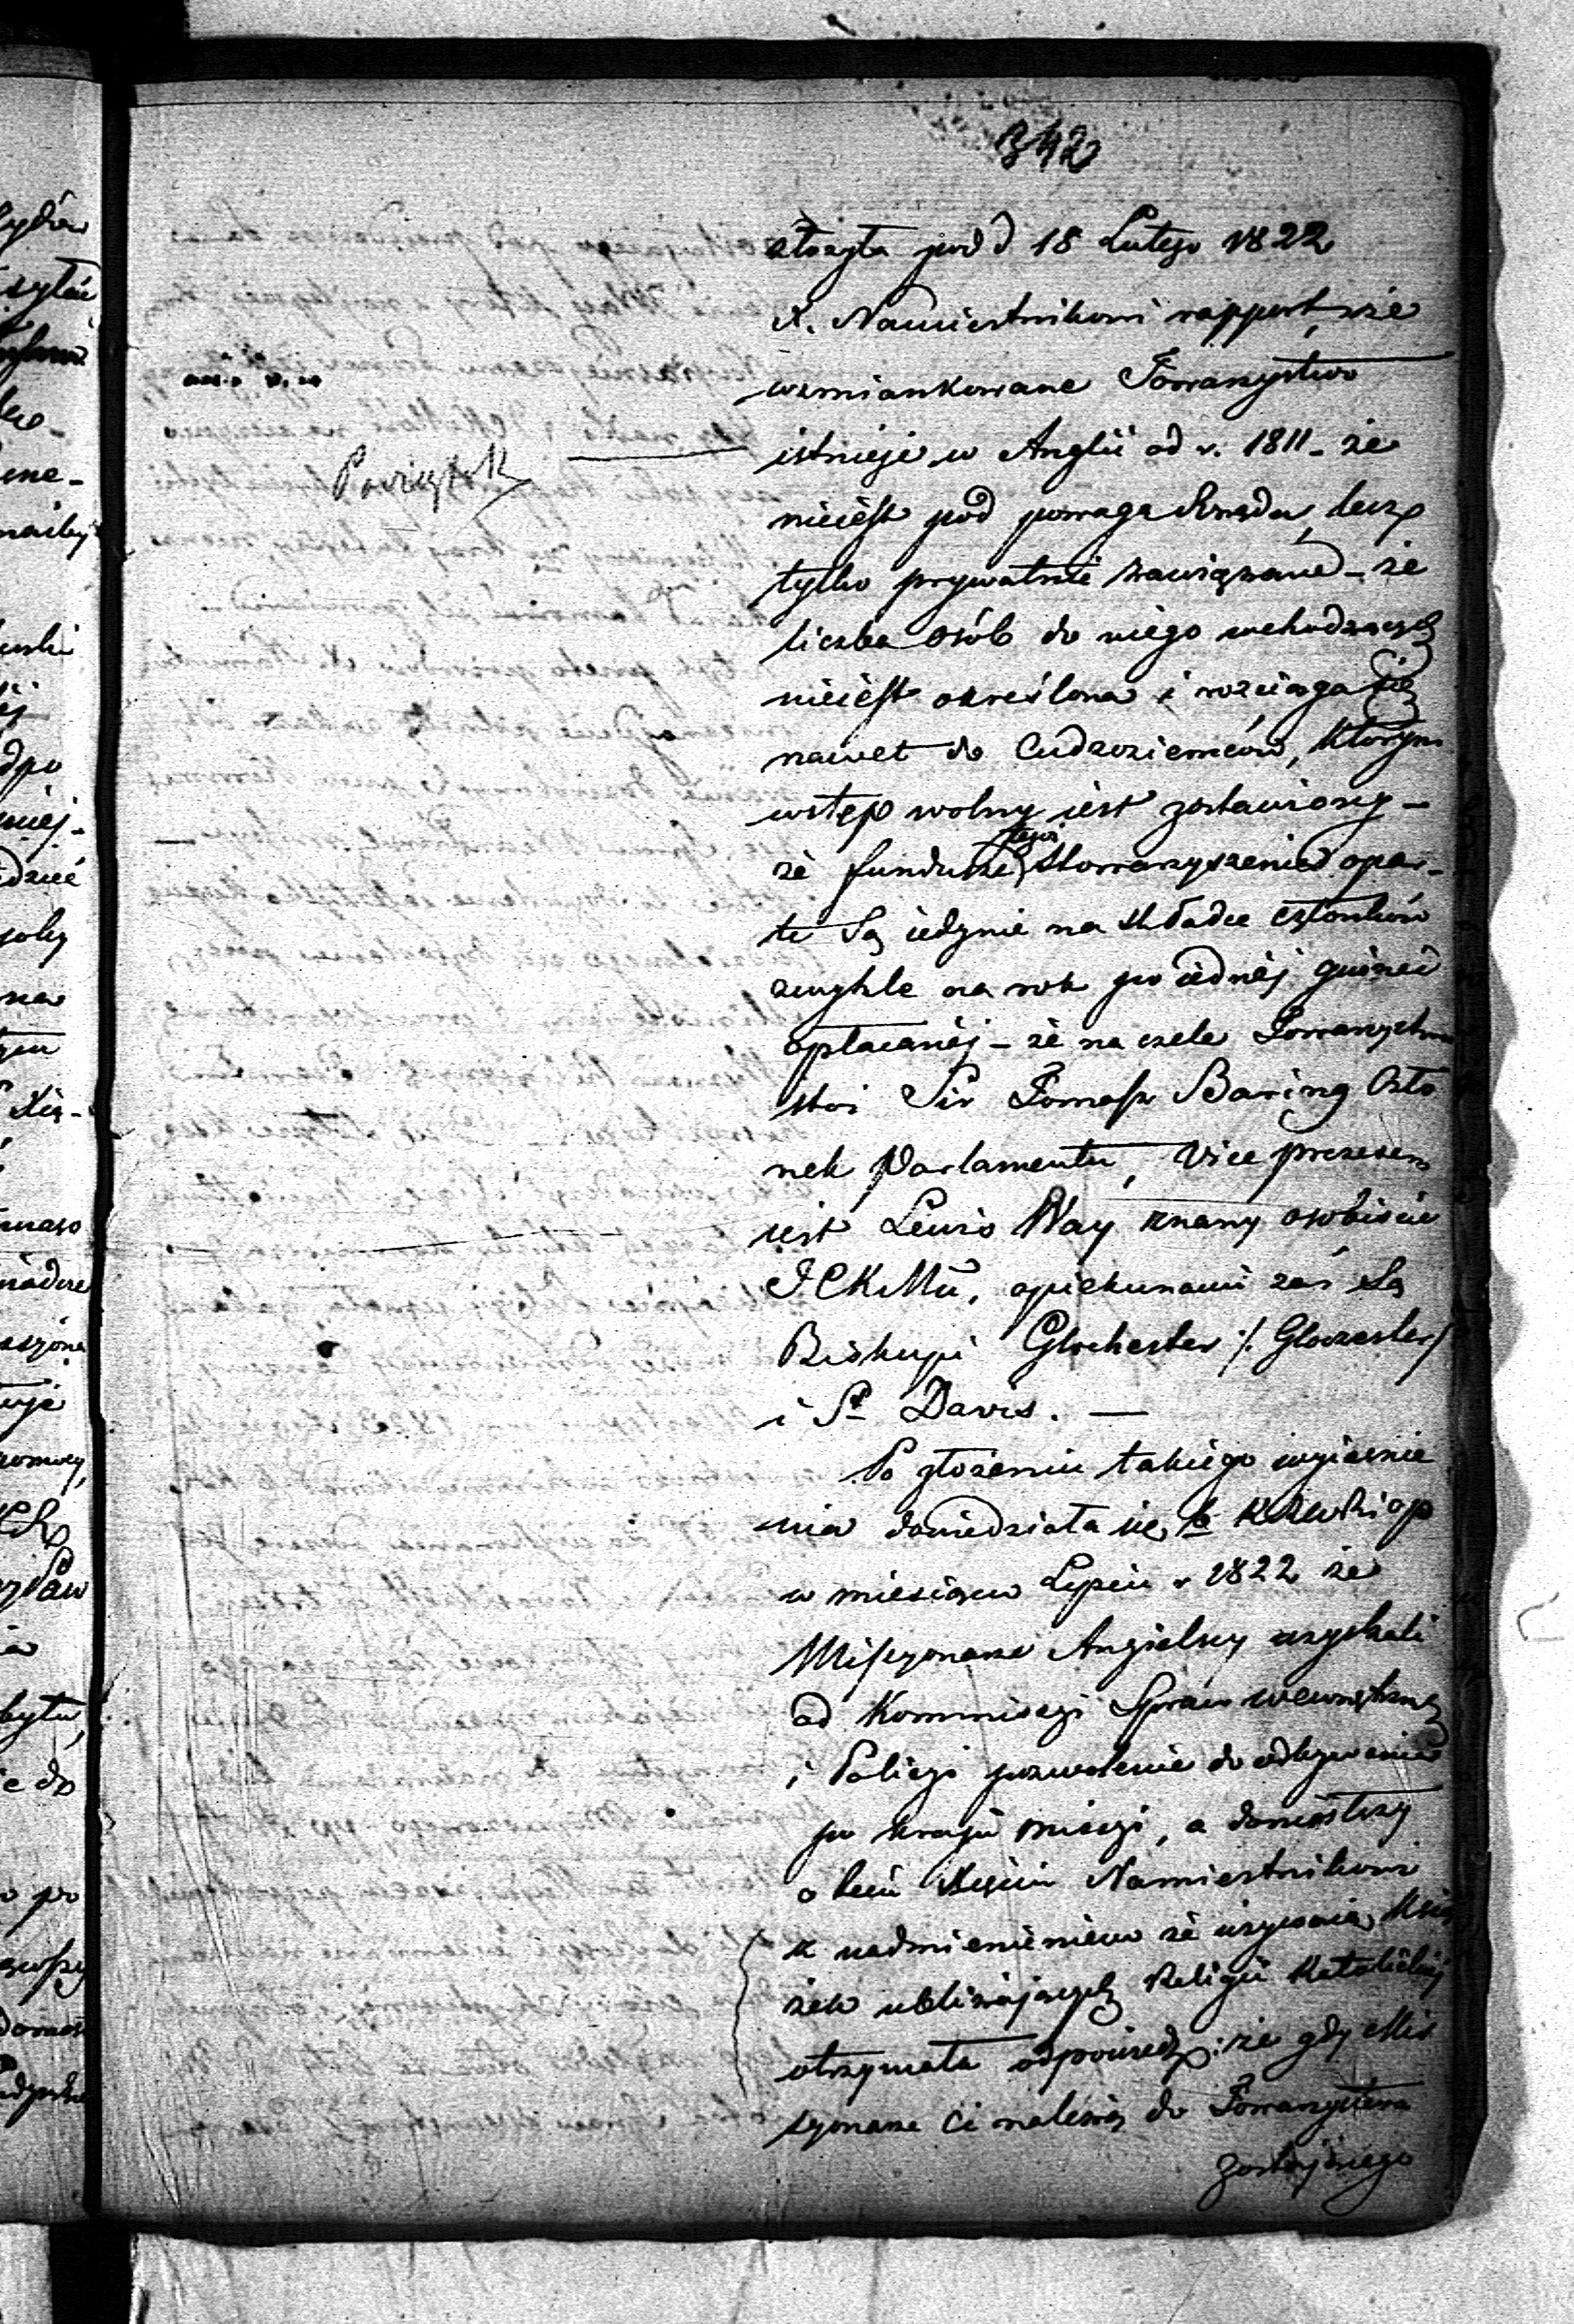 342
złożyła pod d 18 Lutego 1822
X. Namiestnikowi rapport, że
wzmiankowane Towarzystwo
istnieje w Anglii od r. 1811 - że
Początek
nieiest pod powagą Rządu, lecz
tylko prywatnie zawiązane - że
liczba osób do niego wchodzących
nieiest określona i rozciąga się
nawet do Cudzoziemców, którym
wstęp wolny iest zostawiony -
że fundusze tegoż Stowarzyszenia opar-
te są iedynie na składce członków
zwykle na rok po iednéj guinei
opłacanéj - że na czele Towarzystwa
stoi Sir Tomasz Baring Czło
nek Parlamentu, Vice prezesem
iest Lewis Way znany osobiście
J C K Mci, opiekunami zaś są
Biskupi Glochester /: Gloczester /
i St Davis. —
Po złożeniu takiego wyiaśnie
nia dowiedziała się
w miesiącu Lipcu r 1822 że
Missyonarze Angielscy uzyskali
od Kommissyi Spraw wewnętrznych
i Policyi pozwolenie do odbywania
po kraju missyi, a doniósłszy
o tem Xięciu Namiestnikowi
z nadmienieniem że używaią Ksią
żek ubliżających Religii Katolickiéj
otrzymała odpowiedź: że gdy Mis
syonarze ci należą do Towarzystwa
zostającego